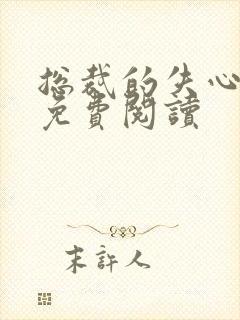 总裁的失心
免費閱讀
末許人